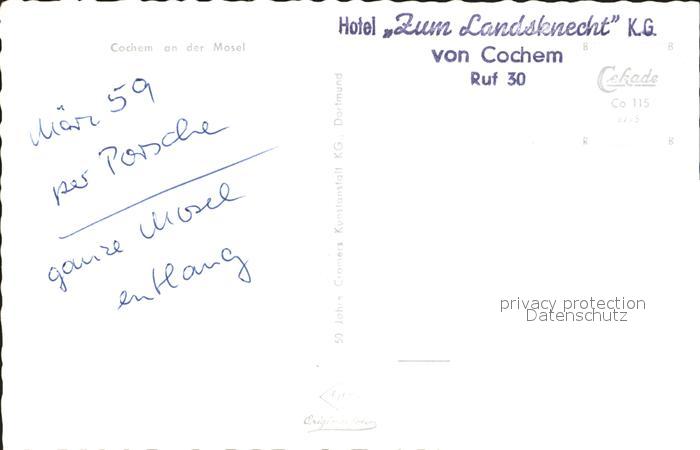 Cochem an der Mosel
Hotel „Zum Landsknecht" K.G.
von Cochem
Ruf 30
Cekade
Co 115
März 59
per Porsche
ganze Mosel
entlang
50 Jahre Cramers Kunstanstalt KG., Dortmund
privacy protection
Datenschutz